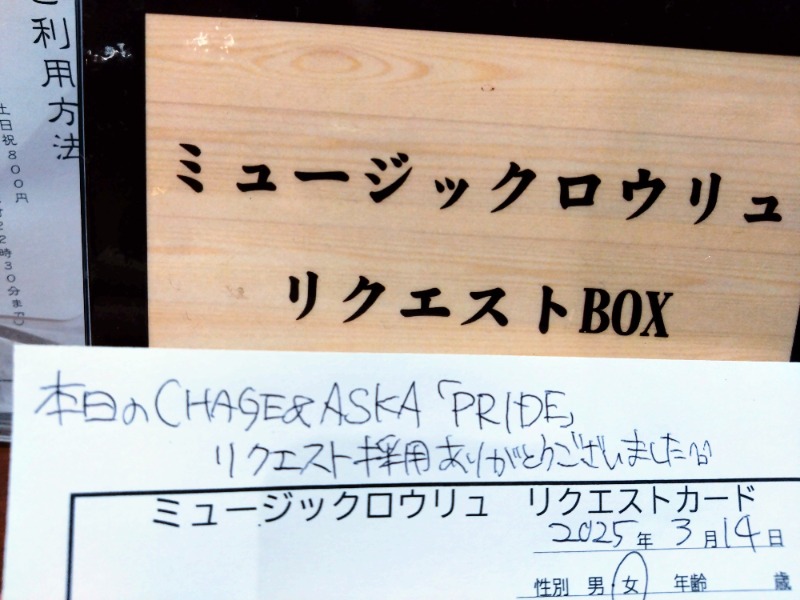 ご利用方法
土日祝800円
22時30分まで)
ミュージックロウリュ
リクエストBOX
本日のCHAGE&ASKA「PRIDE」
リクエスト採用ありがとうございました
ミュージックロウリュ リクエストカード
2025年 3月14日
性別 男・女 年齢 歳